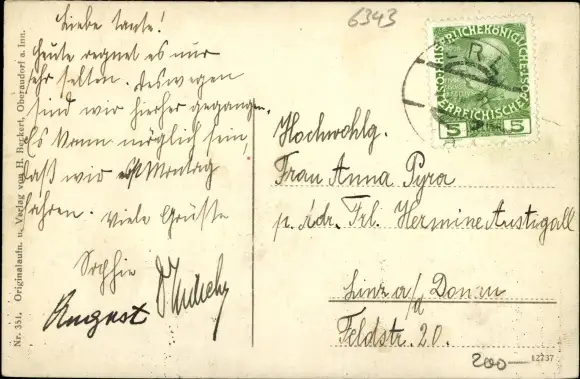 Liebe Tante!
Heute regnet es nur
sehr selten. Deswegen
sind wir hierher gegangen.
Es kann möglich sein,
daß wir erst Montag
fahren. Viele Grüße
Sophie
August
6343
ERL
5 5
Hochwohlg.
Frau Anna Pyra
p. Adr. Frl. Hermine Austigall
Linz a/d Donau
Feldstr. 20.
200—
12737
Nr. 351. Originalaufn. u. Verlag von H. Beckert, Oberaudorf a. Inn.